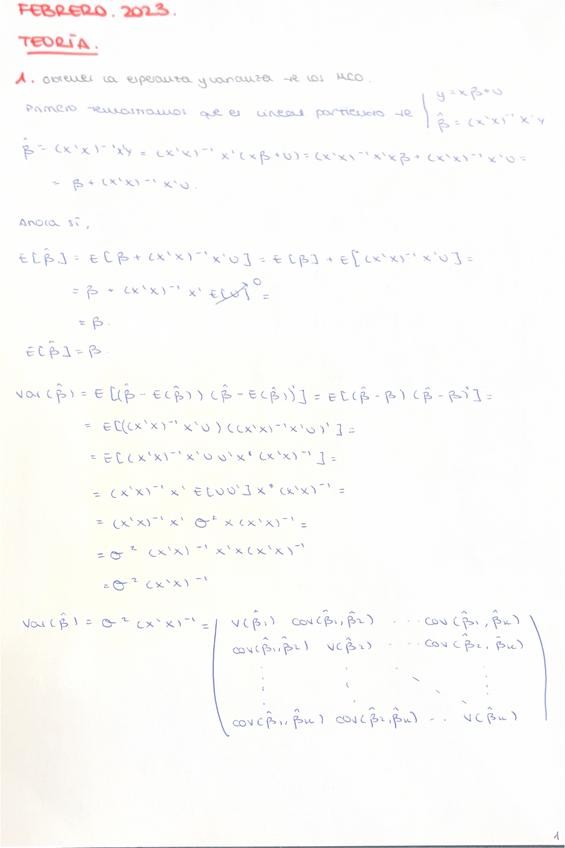 FEBRERO. 2023.
TEORÍA.
1. Obtener la esperanza y varianza de los MCO.
Primero demostramos que es lineal partiendo de { y = xβ + U
β̂ = (x'x)⁻¹ x'y
β̂ = (x'x)⁻¹x'y = (x'x)⁻¹ x' (xβ + U) = (x'x)⁻¹ x'xβ + (x'x)⁻¹ x'U =
= β + (x'x)⁻¹ x'U.
Ahora sí,
E[β̂] = E[β + (x'x)⁻¹ x'U] = E[β] + E[(x'x)⁻¹ x'U] =
= β + (x'x)⁻¹ x' E[U] 0 =
= β.
E[β̂] = β.
Var(β̂) = E[(β̂ - E(β̂)) (β̂ - E(β̂))'] = E[(β̂ - β) (β̂ - β)'] =
= E[((x'x)⁻¹ x'U) ((x'x)⁻¹ x'U)'] =
= E[(x'x)⁻¹ x'U U' x (x'x)⁻¹] =
= (x'x)⁻¹ x' E[UU'] x (x'x)⁻¹ =
= (x'x)⁻¹ x' σ² x (x'x)⁻¹ =
= σ² (x'x)⁻¹ x'x (x'x)⁻¹
= σ² (x'x)⁻¹
Var(β̂) = σ² (x'x)⁻¹ = ( V(β̂₁) cov(β̂₁,β̂₂) ... cov(β̂₁,β̂ₖ)
cov(β̂₁,β̂₂) V(β̂₂) ... cov(β̂₂,β̂ₖ)
⋮ ⋮ ⋱ ⋮
cov(β̂₁,β̂ₖ) cov(β̂₂,β̂ₖ) .. V(β̂ₖ) )
1